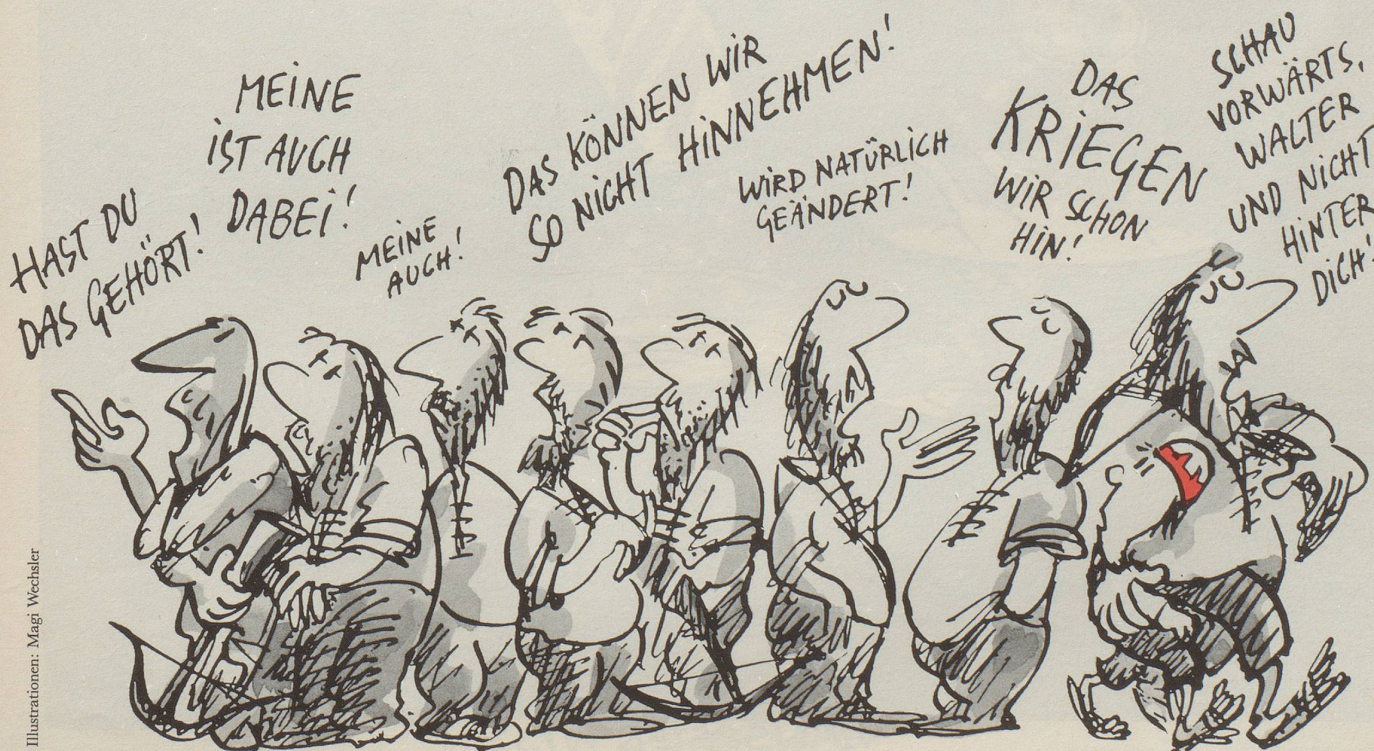 HAST DU
DAS GEHÖRT!
MEINE
IST AUCH
DABEI!
MEINE
AUCH!
DAS KÖNNEN WIR
SO NICHT HINNEHMEN!
WIRD NATÜRLICH
GEÄNDERT!
DAS
KRIEGEN
WIR SCHON
HIN!
SCHAU
VORWÄRTS,
WALTER
UND NICHT
HINTER
DICH!
Illustrationen: Magi Wechsler